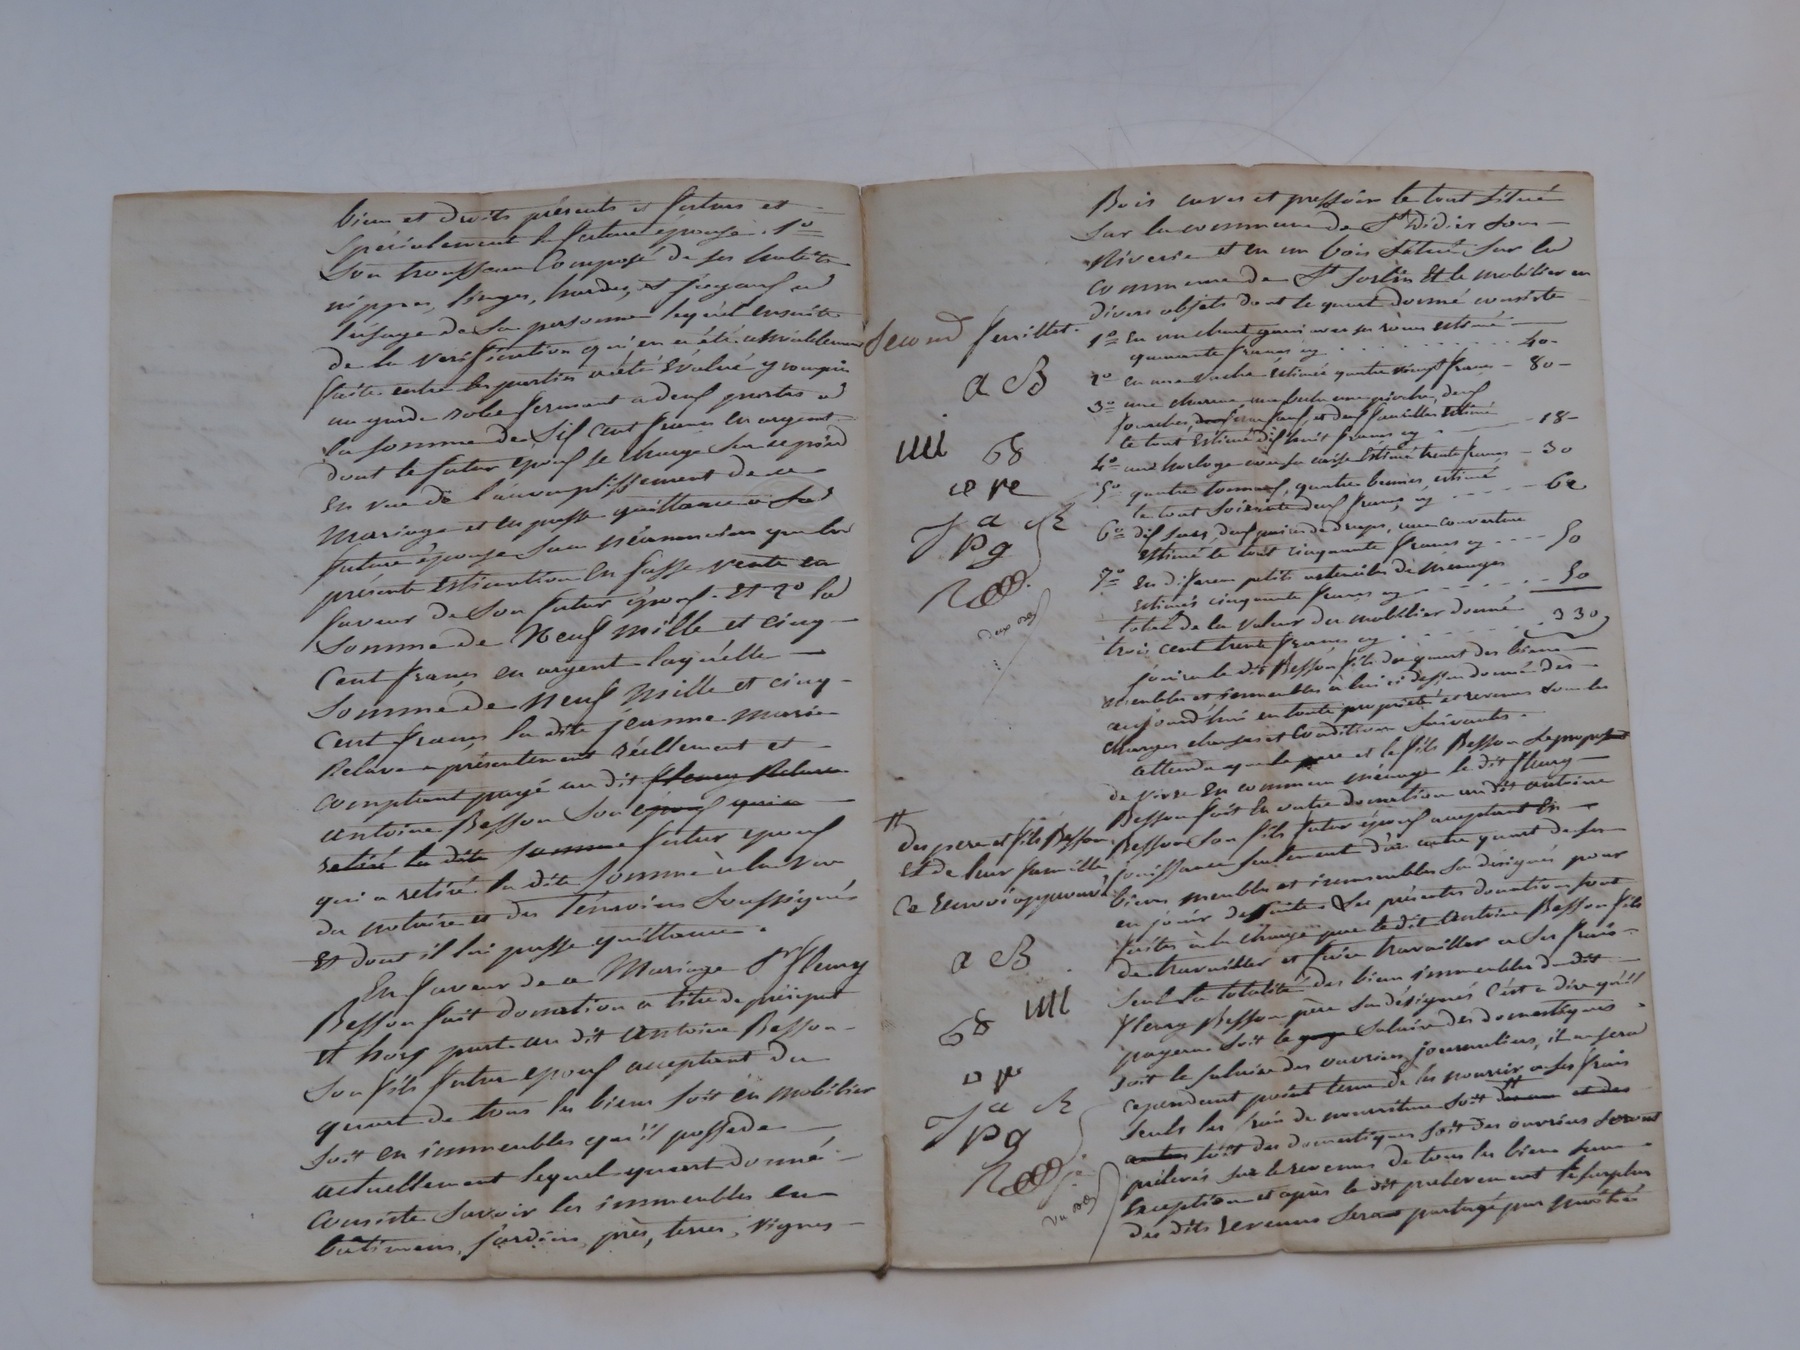 biens et droits présents et futurs et
spécialement la future épouse. 1º
Son trousseau composé de ses habits
nippes, linges, hardes, et joyaux a
l'usage de sa personne lequel ensuite
de la vérification qu'en a été amiablement
faite entre les parties a été évalué y compris
un garde robe fermant a deux portes a
la somme de Six cent francs en argent
dont le futur époux se charge sur ce pied
en vue de l'accomplissement de ce
Mariage et en passe quittance a la
future épouse sans néanmoins que la
présente estimation en fasse vente en
faveur de son futur époux. Et 2º la
Somme de Neuf mille et cinq
Cent francs en argent laquelle
Somme de Neuf mille et cinq
Cent francs la dite jeanne marie
Relave a présentement réellement et
comptant payé au dit fleury Relave
antoine Besson son époux qui a
retiré la dite somme futur époux
qui a retiré la dite Somme à la vue
du notaire et des Témoins Soussignés
Et dont il lui passe quittance.
En faveur de ce Mariage Sr fleury
Besson fait donation a titre de préciput
et hors part au dit antoine Besson
Son fils futur époux acceptant du
quart de tous les biens soit en mobilier
soit en immeubles qu'il possède
actuellement lequel quart donné
Consiste Savoir les immeubles en
bâtimens, jardin, près, terres, vignes
Second feuillet.
a B
68
Ja R
pg
deux mots
#
des pere et fils Besson
et de leur famille
Ce Renvoi approuvé
a B
68
Ja R
pg
Bois cuves et pressoir le tout situé
Sur la commune de St Didier sous
Riverie et en un bois situé sur la
commune de St Sorlin Et le mobilier en
divers objets dont le quart donné consiste
1º En un char garni avec ses roues estimé
quarante francs cy . . . . . . . 40-
2º en une vache estimée quatre vingt francs - 80-
3º une charrue une pioche, deux
le tout Estimé dix huit francs cy - 18-
4º une horloge avec sa caisse Estimée trente francs - 30
5º quatre tonneaux, quatre bennes, estimé
le tout soixante deux francs cy - - - - 62
6º dix sacs, deux paires de draps, une couverture
estimé le tout cinquante francs cy - - - - 50
7º En diferens petits ustenciles de ménages
Estimés cinquante francs cy - - - - 50
total de la valeur du mobilier donné
trois cent trente francs cy . . . . . 330
jouira le dit Besson fils du quart des biens
meubles et immeubles à lui ci dessus donné dès
aujourd'hui en toute propriété et revenus sous les
charges clauses et Conditions suivantes.
attendu que le pere et le fils Besson se proposent
de vivre En commun ménage le dit fleury
Besson fait En outre donation au dit antoine
Besson Son fils futur époux acceptant En
jouissance seulement d'un autre quart de ses
biens meubles et immeubles sus désignés pour
en jouir de suite. Les présentes donations sont
faites à la charge par le dit antoine Besson fils
de travailler et faire travailler a ses frais
Seul la totalité des biens immeubles du dit
fleury Besson père sus désignés C'est a dire qu'il
payera soit le gage Salaire des domestiques
soit le Salaire des ouvriers journaliers, il ne sera
cependant point tenu de les nourrir a ses frais
Seuls les frais de nourriture soit #
soit des domestiques soit des ouvriers seront
prélevés sur le revenu de tous les biens sans
Exception et après le dit prélevement le surplus
des dits revenus sera partagé par moitié